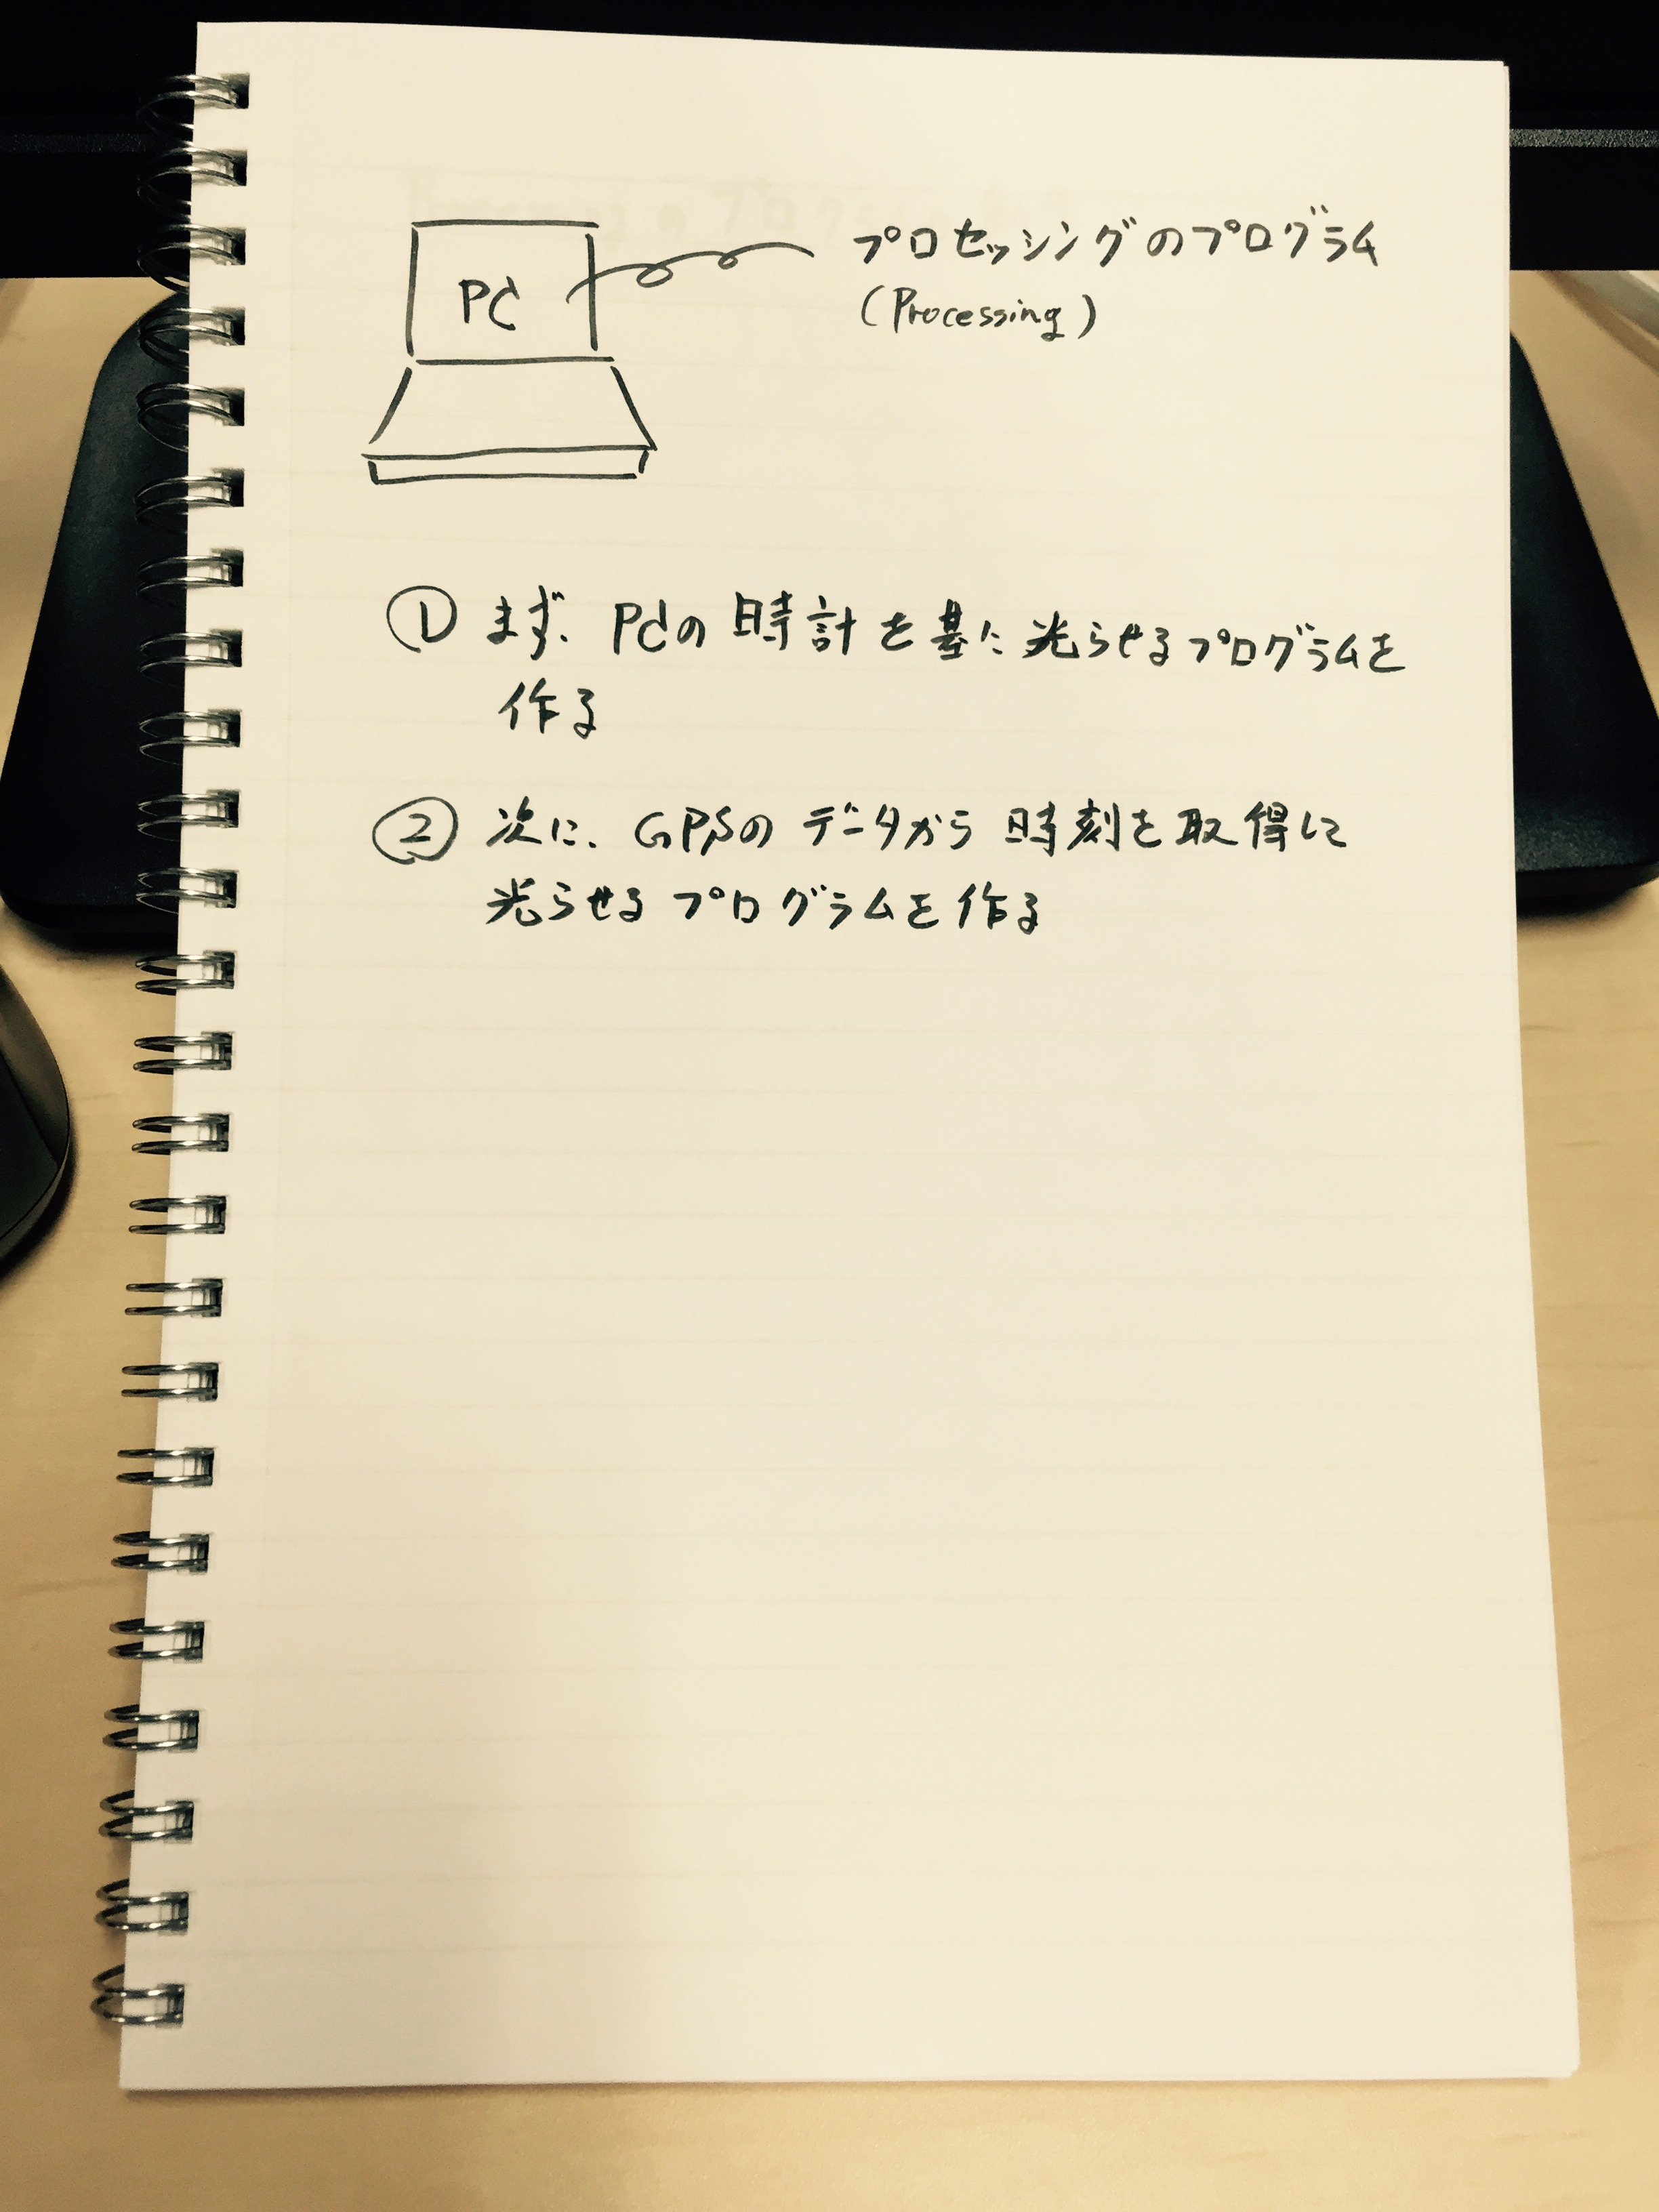 PC
プロセッシングのプログラム
(Processing)
① まず、PCの時計を基に光らせるプログラムを
作る
② 次に、GPSのデータから時刻を取得して
光らせるプログラムを作る